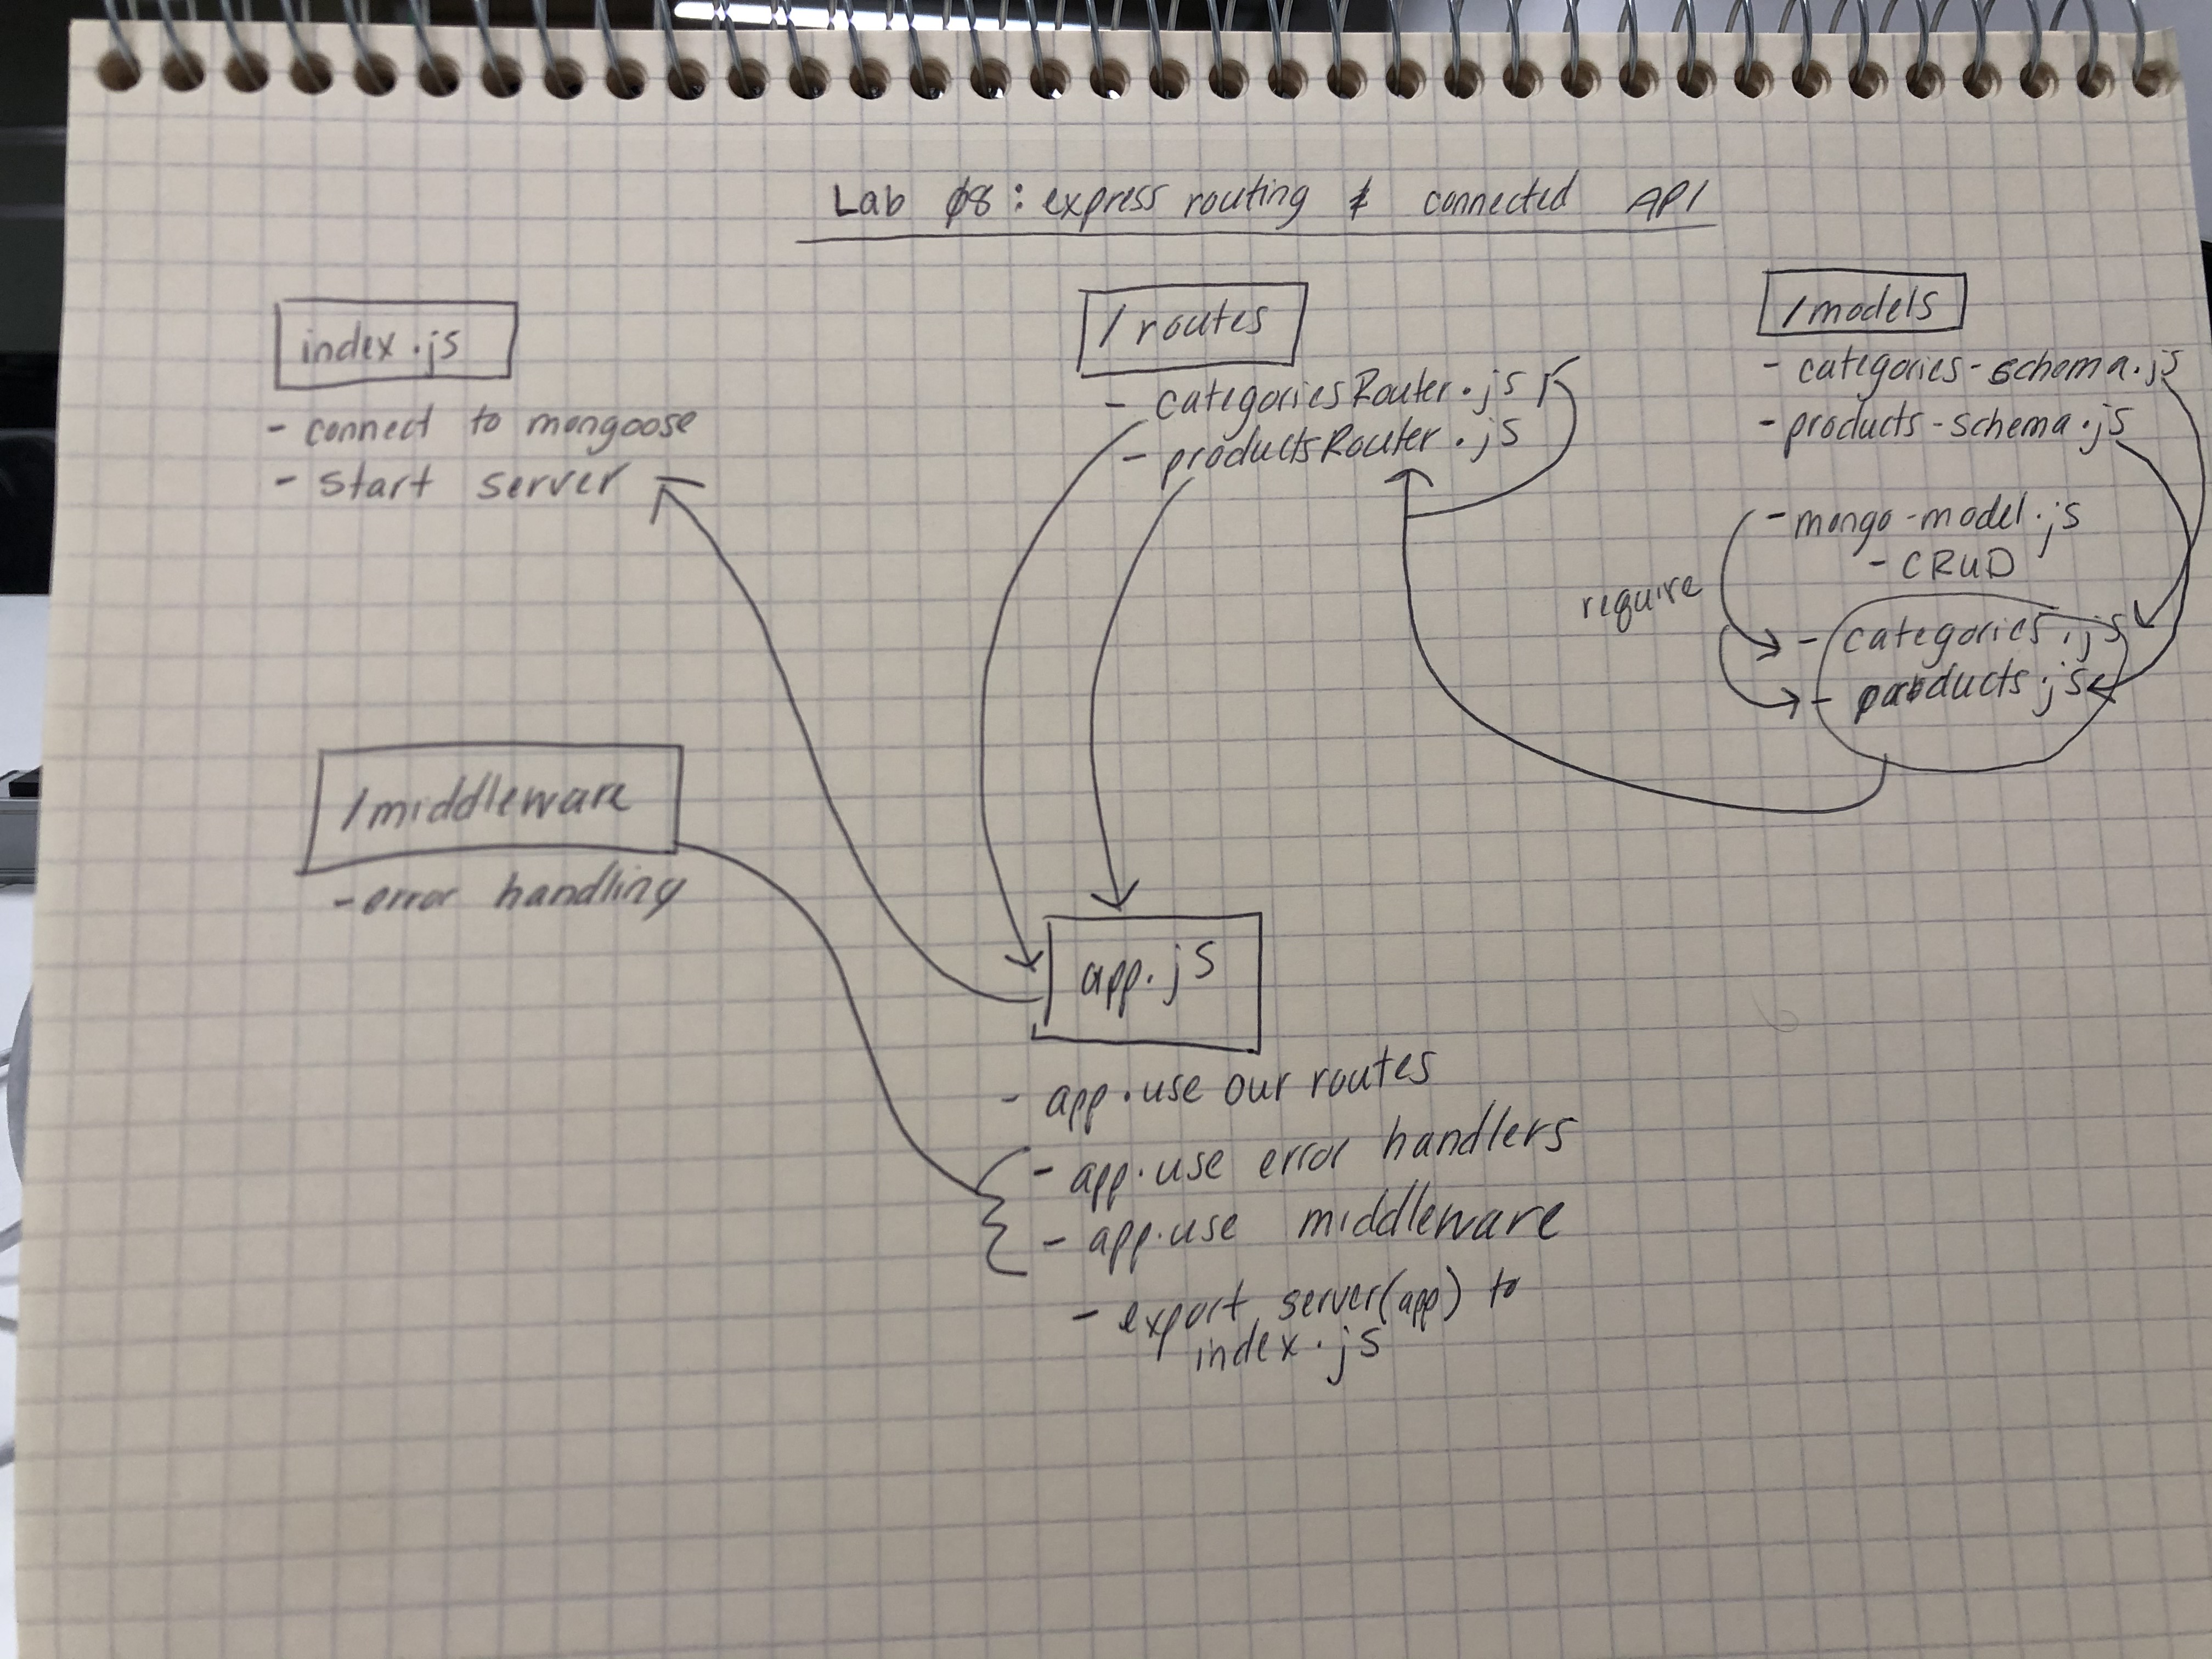 Lab 08: express routing & connected API
index.js
- connect to mongoose
- start server
/routes
- categoriesRouter.js
- productsRouter.js
/models
- categories-schema.js
- products-schema.js
- mongo-model.js
- CRUD
require
- categories.js
- products.js
/middleware
- error handling
app.js
- app.use our routes
- app.use error handlers
- app.use middleware
- export server(app) to
index.js